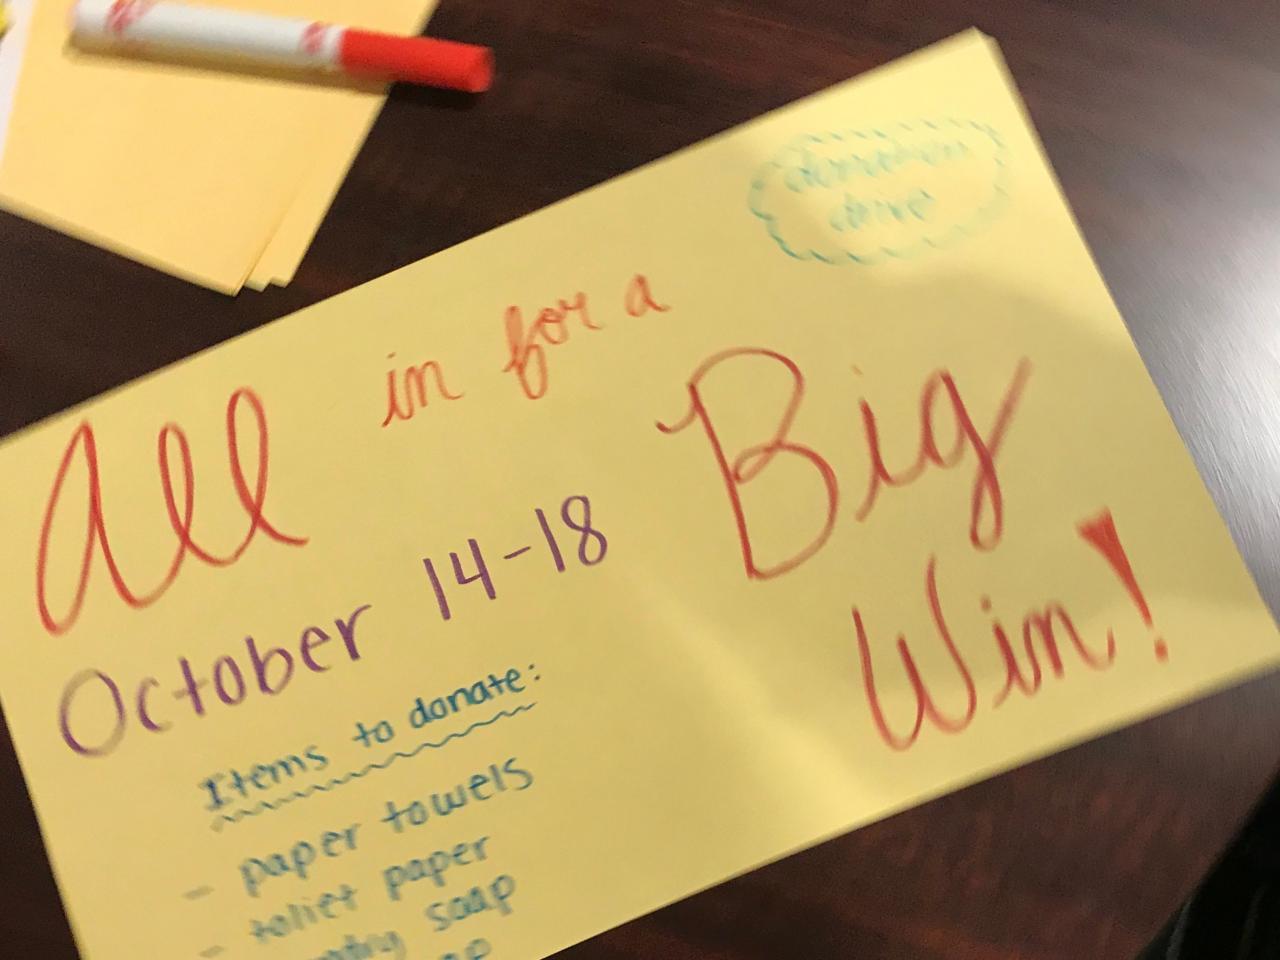 donation
drive
All in for a
Big
Win!
October 14-18
Items to donate:
- paper towels
- toliet paper
soap